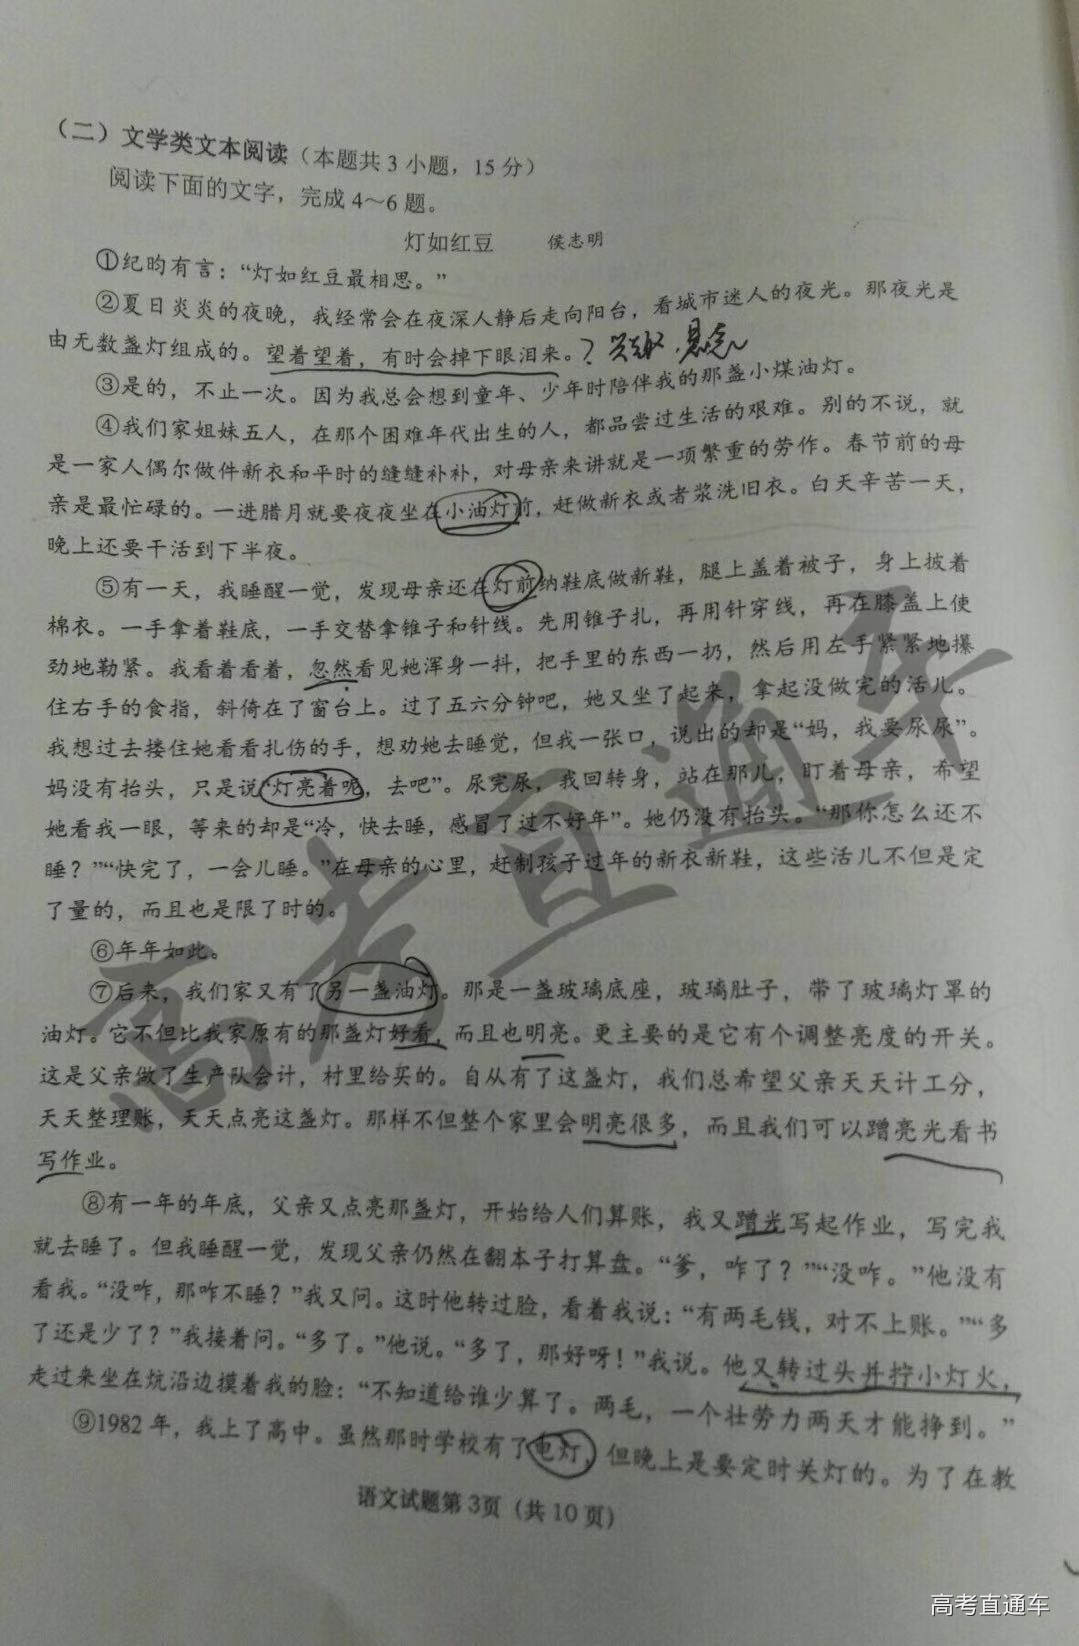 （二）文学类文本阅读（本题共3小题，15分）
阅读下面的文字，完成4～6题。
灯如红豆 侯志明
①纪昀有言：“灯如红豆最相思。”
②夏日炎炎的夜晚，我经常会在夜深人静后走向阳台，看城市迷人的夜光。那夜光是
由无数盏灯组成的。望着望着，有时会掉下眼泪来。？ 悬念
③是的，不止一次。因为我总会想到童年、少年时陪伴我的那盏小煤油灯。
④我们家姐妹五人，在那个困难年代出生的人，都品尝过生活的艰难。别的不说，就
是一家人偶尔做件新衣和平时的缝缝补补，对母亲来讲就是一项繁重的劳作。春节前的母
亲是最忙碌的。一进腊月就要夜夜坐在小油灯前，赶做新衣或者浆洗旧衣。白天辛苦一天，
晚上还要干活到下半夜。
⑤有一天，我睡醒一觉，发现母亲还在灯前纳鞋底做新鞋，腿上盖着被子，身上披着
棉衣。一手拿着鞋底，一手交替拿锥子和针线。先用锥子扎，再用针穿线，再在膝盖上使
劲地勒紧。我看着看着，忽然看见她浑身一抖，把手里的东西一扔，然后用左手紧紧地攥
住右手的食指，斜倚在了窗台上。过了五六分钟吧，她又坐了起来，拿起没做完的活儿。
我想过去搂住她看看扎伤的手，想劝她去睡觉，但我一张口，说出的却是“妈，我要尿尿”。
妈没有抬头，只是说“灯亮着呢，去吧”。尿完尿，我回转身，站在那儿，盯着母亲，希望
她看我一眼，等来的却是“冷，快去睡，感冒了过不好年”。她仍没有抬头。“那你怎么还不
睡？”“快完了，一会儿睡。”在母亲的心里，赶制孩子过年的新衣新鞋，这些活儿不但是定
了量的，而且也是限了时的。
⑥年年如此。
⑦后来，我们家又有了另一盏油灯。那是一盏玻璃底座，玻璃肚子，带了玻璃灯罩的
油灯。它不但比我家原有的那盏灯好看，而且也明亮。更主要的是它有个调整亮度的开关。
这是父亲做了生产队会计，村里给买的。自从有了这盏灯，我们总希望父亲天天计工分，
天天整理账，天天点亮这盏灯。那样不但整个家里会明亮很多，而且我们可以蹭亮光看书
写作业。
⑧有一年的年底，父亲又点亮那盏灯，开始给人们算账，我又蹭光写起作业，写完我
就去睡了。但我睡醒一觉，发现父亲仍然在翻本子打算盘。“爹，咋了？”“没咋。”他没有
看我。“没咋，那咋不睡？”我又问。这时他转过脸，看着我说：“有两毛钱，对不上账。”“多
了还是少了？”我接着问。“多了。”他说。“多了，那好呀！”我说。他又转过头并拧小灯火，
走过来坐在炕沿边摸着我的脸：“不知道给谁少算了。两毛，一个壮劳力两天才能挣到。”
⑨1982年，我上了高中。虽然那时学校有了电灯，但晚上是要定时关灯的。为了在教
语文试题第3页（共10页）
高考直通车
高考直通车